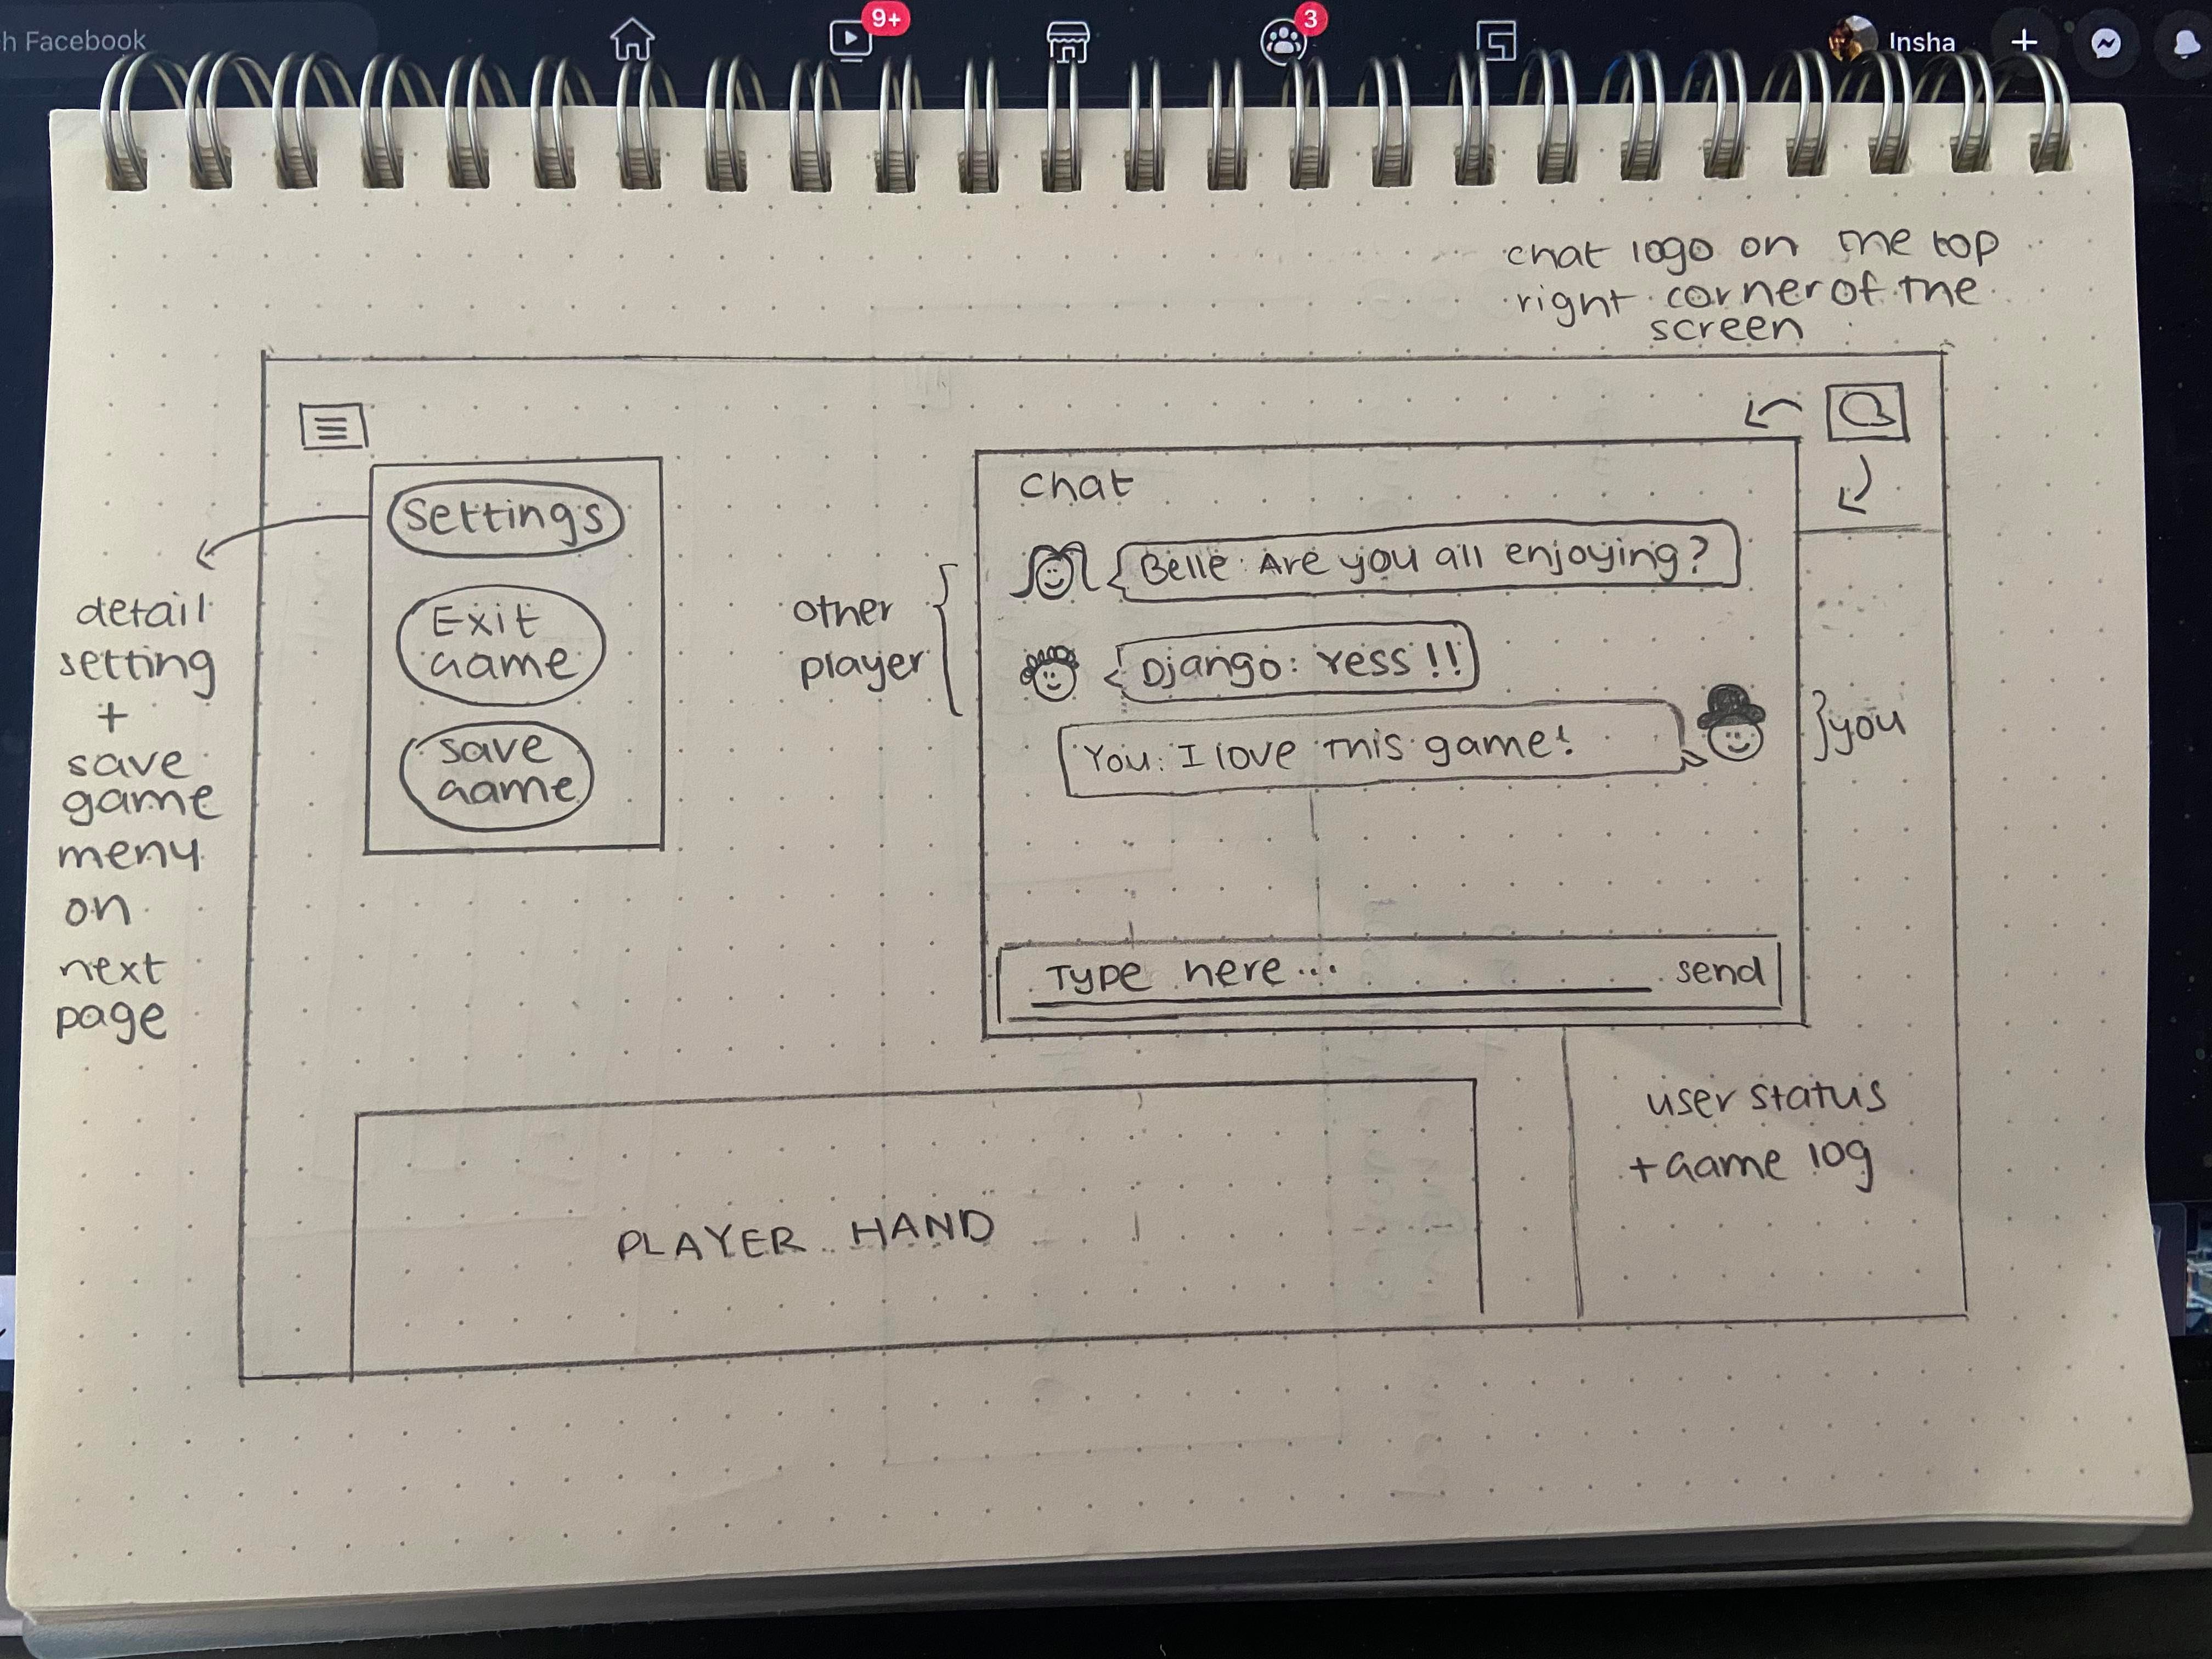 h Facebook
9+
3
Insha
chat logo on the top
right corner of the
screen
Settings
Exit
Game
save
Game
detail
setting
+
save
game
menu
on
next
page
Chat
Belle: Are you all enjoying?
Django: Yess!!
You: I love this game!
other
player
you
Type here...
send
user status
+ Game log
PLAYER HAND